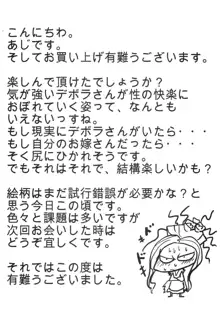 こんにちわ。
あじです。
そしてお買い上げ有難うございます。
楽しんで頂けたでしょうか？
気が強いデボラさんが性の快楽に
おぼれていく姿って、なんとも
いえないっすね。
もし現実にデボラさんがいたら・・・
もし自分のお嫁さんだったら・・・
そく尻にひかれそうです。
でもそれはそれで、結構楽しいかも？
絵柄はまだ試行錯誤が必要かな？と
思う今日この頃です。
色々と課題は多いですが
次回お会いした時は
どうぞ宜しくです。
それではこの度は
有難うございました。